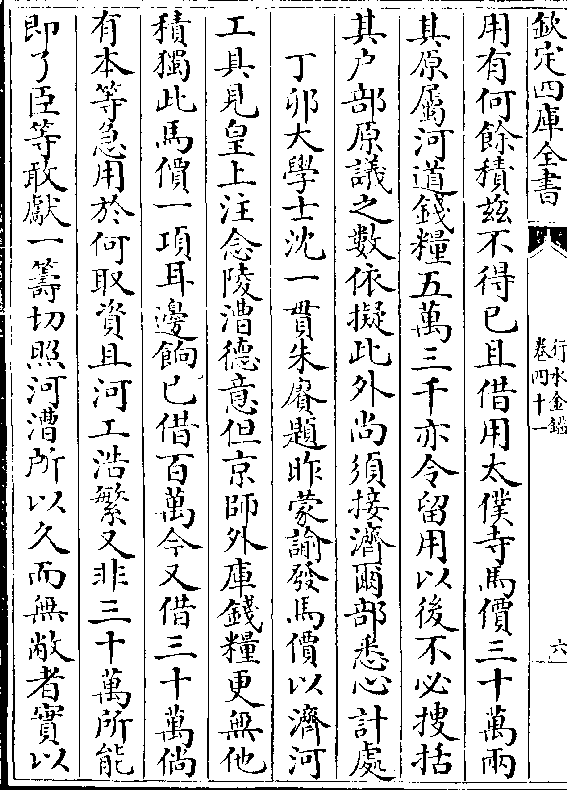 欽定四庫全書
行水金鑑
卷四十一
六
用有何餘積兹不得已且借用太僕寺馬價三十萬兩
其原屬河道錢糧五萬三千亦令留用以後不必搜括
其户部原議之數依擬此外尚須接濟爾部悉心計處
丁卯大學士沈一貫朱賡題昨蒙諭發馬價以濟河
工具見皇上注念陵漕德意但京師外庫錢糧更無他
積獨此馬價一項耳邊餉已借百萬今又借三十萬倘
有本等急用於何取資且河工浩繁又非三十萬所能
即了臣等敢獻一籌切照河漕所以久而無敝者實以